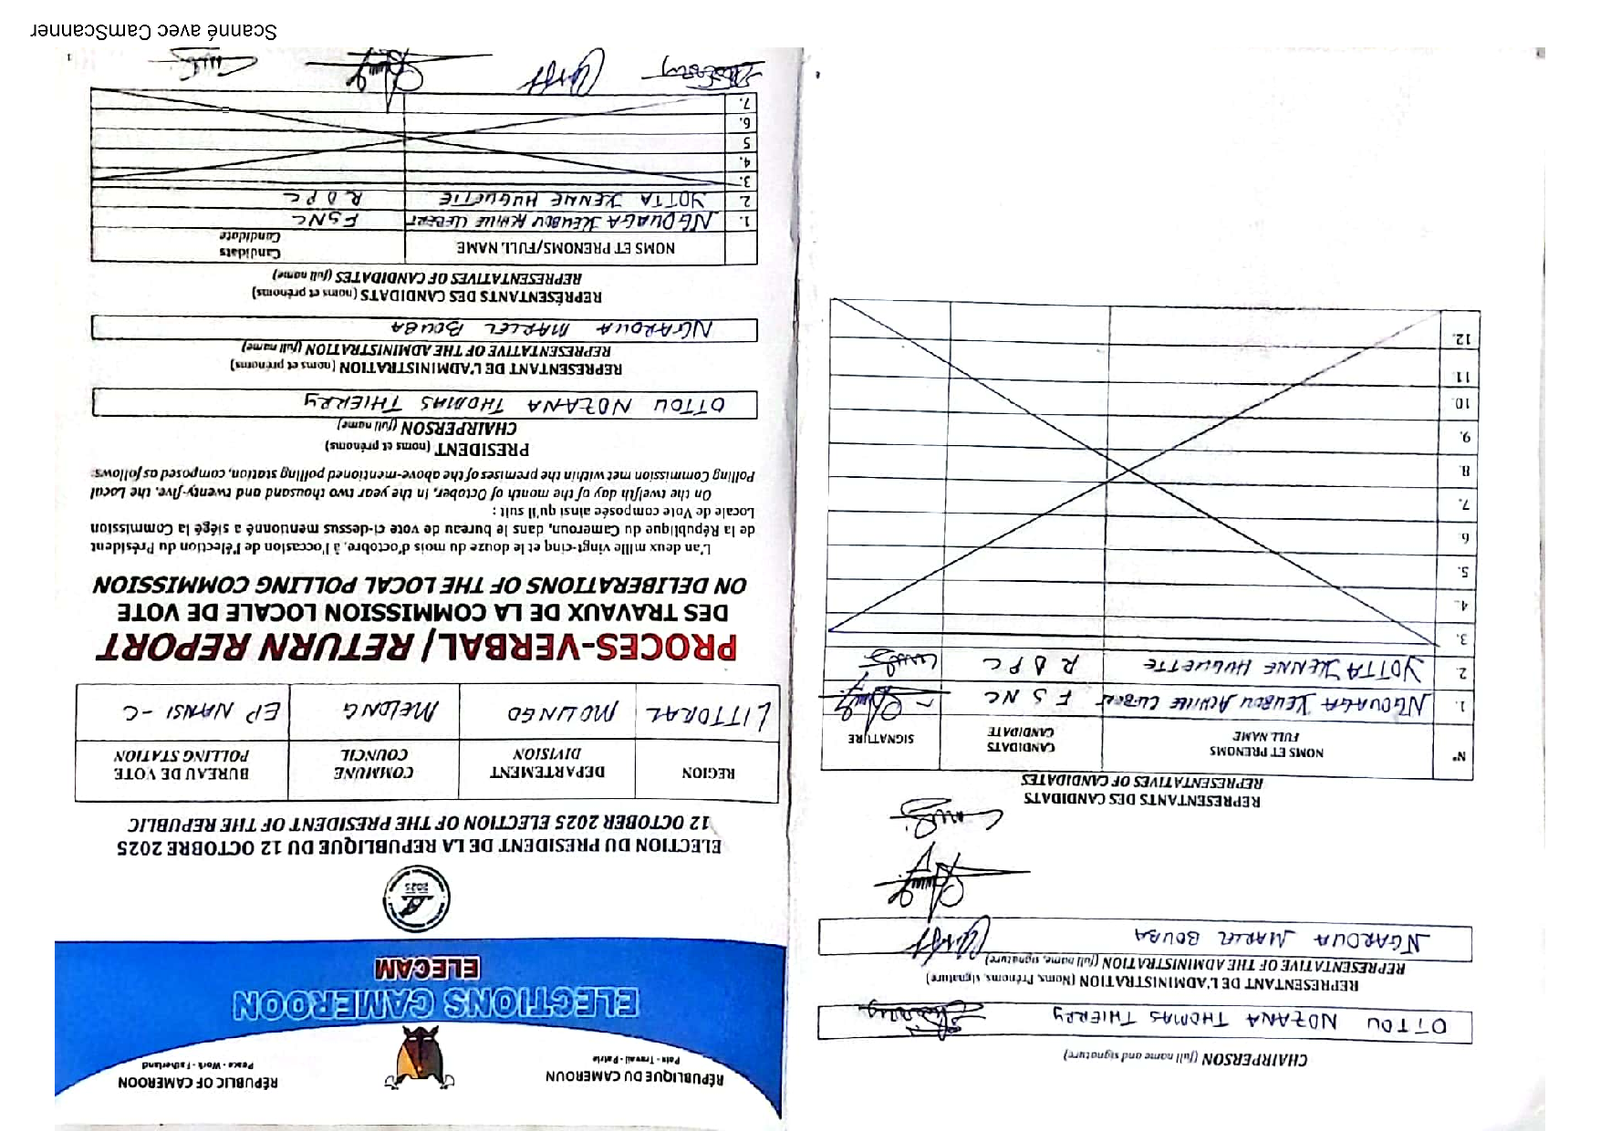 RÉPUBLIQUE DU CAMEROUN
Paix - Travail - Patrie
RÉPUBLIC OF CAMEROON
Peace - Work - Fatherland
ELECTIONS CAMEROON
ELECAM
2025
ELECTION DU PRESIDENT DE LA REPUBLIQUE DU 12 OCTOBRE 2025
12 OCTOBER 2025 ELECTION OF THE PRESIDENT OF THE REPUBLIC
REGION
DEPARTEMENT
DIVISION
COMMUNE
COUNCIL
BUREAU DE VOTE
POLLING STATION
LITTORAL
MOUNGO
MELONG
EP NANSI - C
PROCES-VERBAL/ RETURN REPORT
DES TRAVAUX DE LA COMMISSION LOCALE DE VOTE
ON DELIBERATIONS OF THE LOCAL POLLING COMMISSION
L'an deux mille vingt-cinq et le douze du mois d'octobre, à l'occasion de l'élection du Président
de la République du Cameroun, dans le bureau de vote ci-dessus mentionné a siégé la Commission
Locale de Vote composée ainsi qu'il suit :
On the twelfth day of the month of October, in the year two thousand and twenty-five, the Local
Polling Commission met within the premises of the above-mentioned polling station, composed as follows:
PRESIDENT (noms et prénoms)
CHAIRPERSON (full name)
OTTOU NDZANA THOMAS THIERRY
REPRESENTANT DE L'ADMINISTRATION (noms et prénoms)
REPRESENTATIVE OF THE ADMINISTRATION (full name)
NGAROUA MARCEL BOUBA
REPRÉSENTANTS DES CANDIDATS (noms et prénoms)
REPRESENTATIVES OF CANDIDATES (full name)
NOMS ET PRENOMS/FULL NAME
Candidats
Candidate
1. NGOUAGA KEUBOU ACHILLE CLEBERT FSNC
2 YOTTA KENNE HUGUETTE RDPC
3.
4.
5
6.
7.
1
CHAIRPERSON (full name and signature)
OTTOU NDZANA THOMAS THIERRY
REPRESENTANT DE L'ADMINISTRATION (Noms, Prénoms, signature)
REPRESENTATIVE OF THE ADMINISTRATION (full name, signature)
NGAROUA MARCEL BOUBA
REPRESENTANTS DES CANDIDATS
REPRESENTATIVES OF CANDIDATES
N°
NOMS ET PRENOMS
FULL NAME
CANDIDATS
CANDIDATE
SIGNATURE
1. NGOUAGA KEUBOU ACHILLE CLEBERT FSNC
2 YOTTA KENNE HUGUETTE RDPC
3.
4.
5.
6.
7.
8.
9.
10.
11.
12.
Scanné avec CamScanner